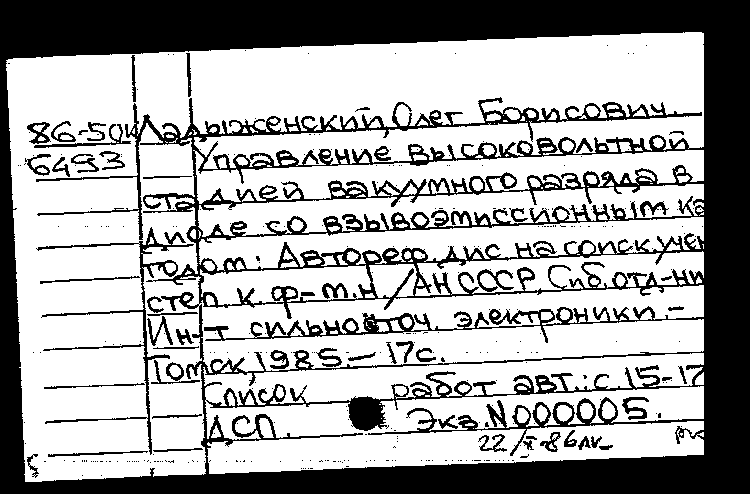 86-50к Ладыженский, Олег Борисович.
6493 Управление высоковольтной
стадией вакуумного разряда в
диоде со взвывоэмиссионным ка
тодом: Автореф. дис. на соиск. учен
степ. к. ф.-т.н. / АН СССР, Сиб. отд-ни
Ин-т сильноточ. электроники. -
Томск, 1985. - 17с.
Список работ авт.: с. 15-17
ДСП. Экз. N000005.
22/ -86